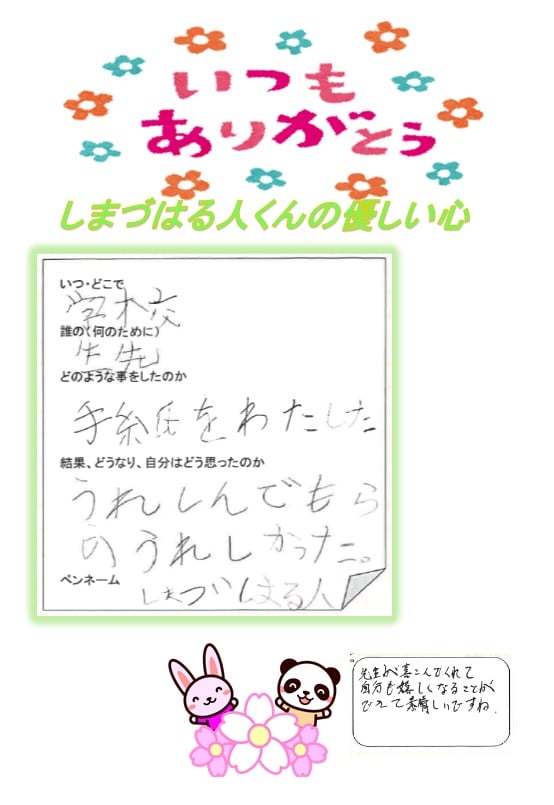 いつも
ありがとう
しまづはる人くんの優しい心
いつ・どこで
学校
誰の（何のために）
生先
どのような事をしたのか
手紙をわたした
結果、どうなり、自分はどう思ったのか
うれしんでもら
のうれしかった。
ペンネーム
しまづはる人
先生が喜こんでくれて
自分も嬉しくなることが
できて素晴しいですね.